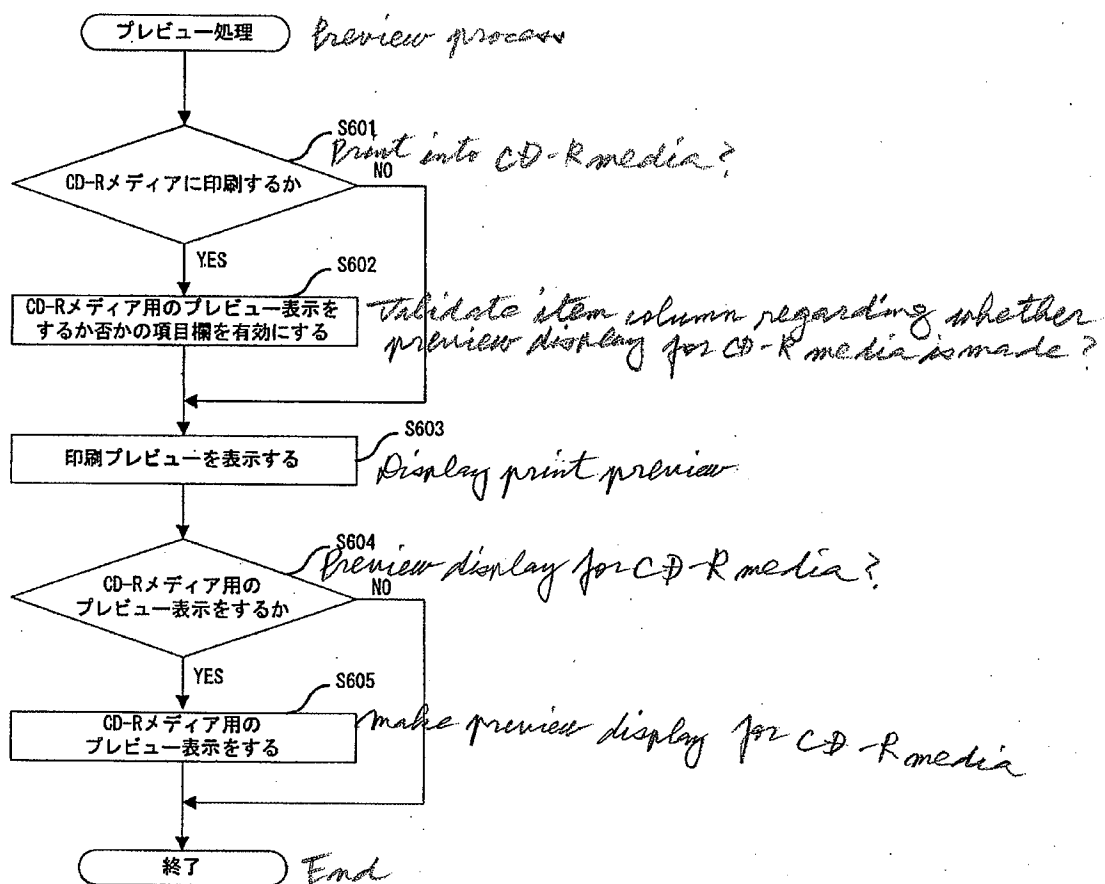 プレビュー処理
Preview process
S601
Print into CD-R media?
CD-Rメディアに印刷するか
NO
YES
S602
CD-Rメディア用のプレビュー表示を
するか否かの項目欄を有効にする
Validate item column regarding whether
preview display for CD-R media is made?
S603
印刷プレビューを表示する
Display print preview
S604
Preview display for CD-R media?
CD-Rメディア用の
プレビュー表示をするか
NO
YES
S605
CD-Rメディア用の
プレビュー表示をする
make preview display for CD-R media
終了
End